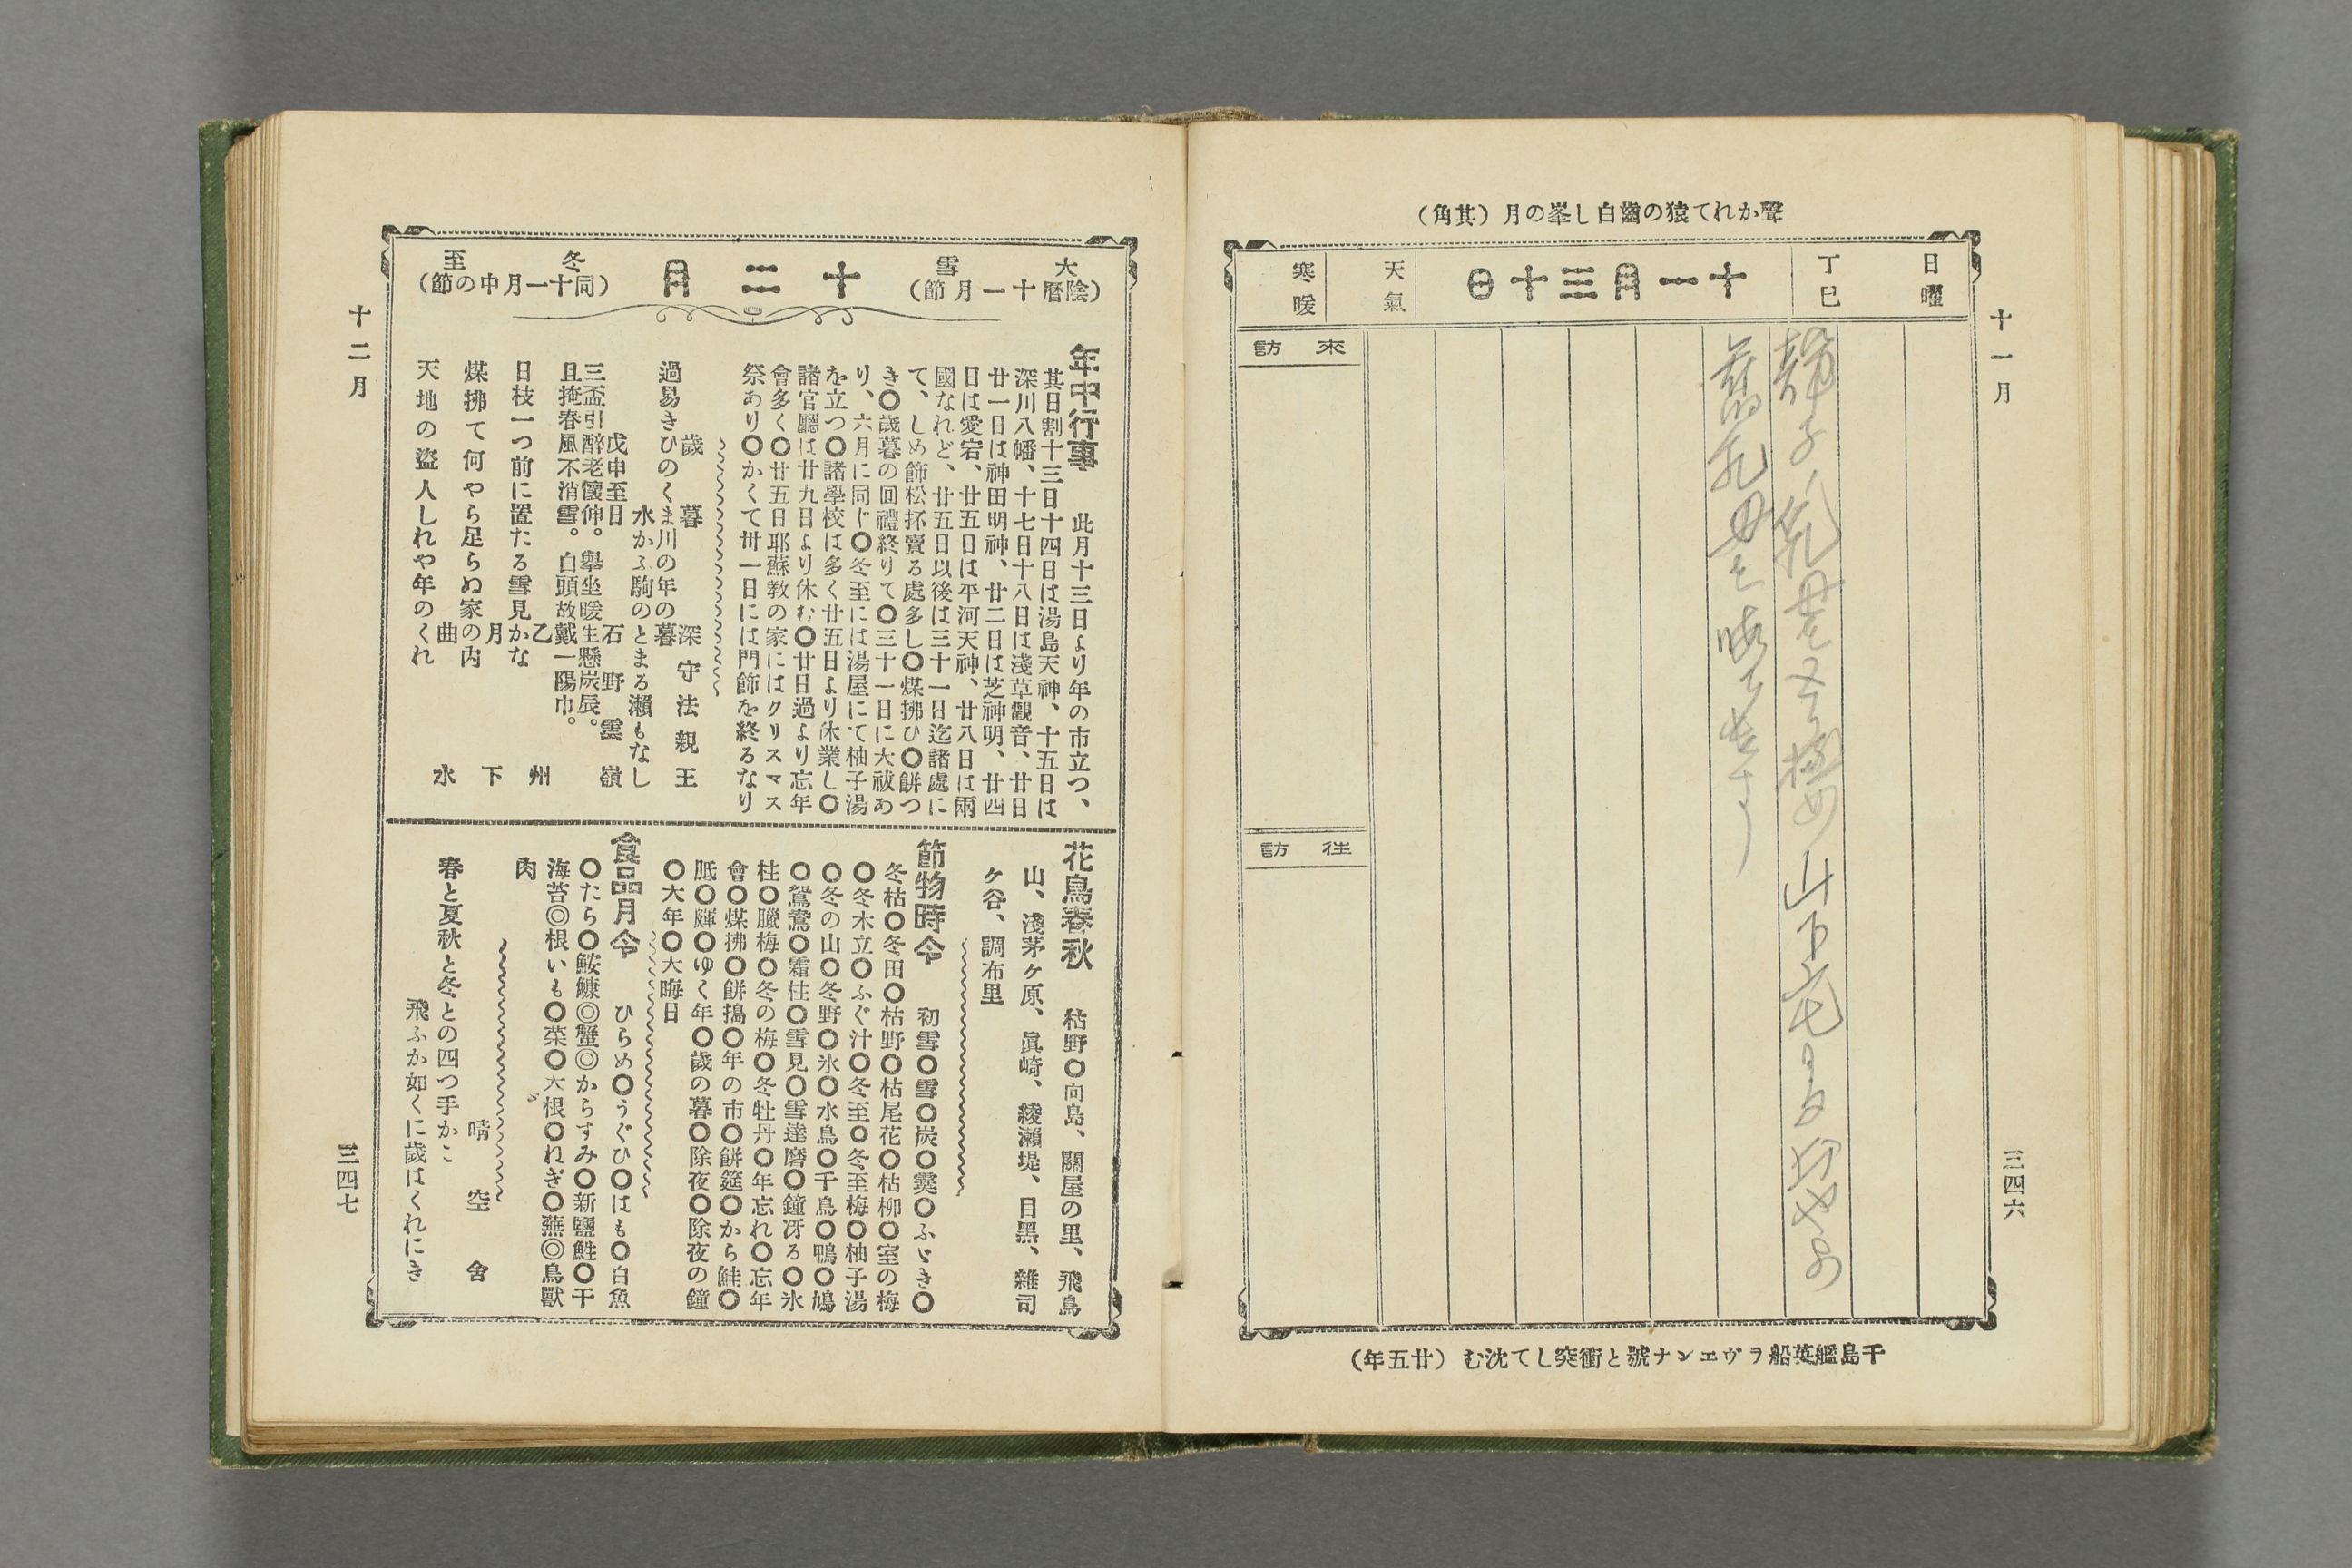 聲かれて猿の齒白し峯の月(其角)
十一月
日曜
丁巳
十一月三十日
天氣
寒暖
靜子ノ乳母
山下
舊乳母
來訪
往訪
千島艦英船ラヴエンナ號と衝突して沈む(廿五年)
三四六
大雪
(陰曆十一月節)
十二月
冬至
(同十一月中の節)
年中行事 此月十三日より年の市立つ、
其日割十三日十四日は湯島天神、十五日は
深川八幡、十七日十八日は淺草觀音、廿日
廿一日は神田明神、廿二日は芝神明、廿四
日は愛宕、廿五日は平河天神、廿八日は兩
國なれど、廿五日以後は三十一日迄諸處に
て、しめ飾松抔賣る處多し〇煤拂ひ〇餅つ
き〇歲暮の回禮終りて〇三十一日に大祓あ
り、六月に同じ〇冬至には湯屋にて柚子湯
を立つ〇諸學校は多く廿五日より休業し〇
諸官廳は廿九日より休む〇廿日過より忘年
會多く〇廿五日耶蘇教の家にはクリスマス
祭あり〇かくて卅一日には門飾を終るなり
歲暮 深守法親王
過易きひのくま川の年の暮
水かふ駒のとまる瀨もなし
戊申至日 石野雲嶺
三盃引醉老懷伸。擧坐暖生懸炭辰。
且掩春風不消雪。白頭故戴一陽巾。
乙州
日枝一つ前に置たる雪見かな
月下
煤拂て何やら足らぬ家の内
曲水
天地の盜人しれや年のくれ
花鳥春秋 枯野〇向島、關屋の里、飛鳥
山、淺茅ケ原、眞崎、綾瀨堤、目黑、雜司
ケ谷、調布里
節物時令 初雪〇雪〇炭〇霙〇ふゞき〇
冬枯〇冬田〇枯野〇枯尾花〇枯柳〇室の梅
〇冬木立〇ふぐ汁〇冬至〇冬至梅〇柚子湯
〇冬の山〇冬野〇氷〇水鳥〇千鳥〇鴨〇鳰
〇鴛鴦〇霜柱〇雪見〇雪達磨〇鐘冴る〇氷
柱〇臘梅〇冬の梅〇冬牡丹〇年忘れ〇忘年
會〇煤拂〇餅搗〇年の市〇餅筵〇から鮭〇
胝〇皹〇ゆく年〇歲の暮〇除夜〇除夜の鐘
〇大年〇大晦日
食品月令 ひらめ〇うぐひ〇はも〇白魚
〇たら〇鮟鱇◎蟹◎からすみ〇新鹽鮭〇干
海苔◎根いも〇菜〇大根〇ねぎ〇蕪◎鳥獸
肉
晴空舍
春と夏秋と冬との四つ手かご
飛ふか如くに歲はくれにき
十二月
三四七